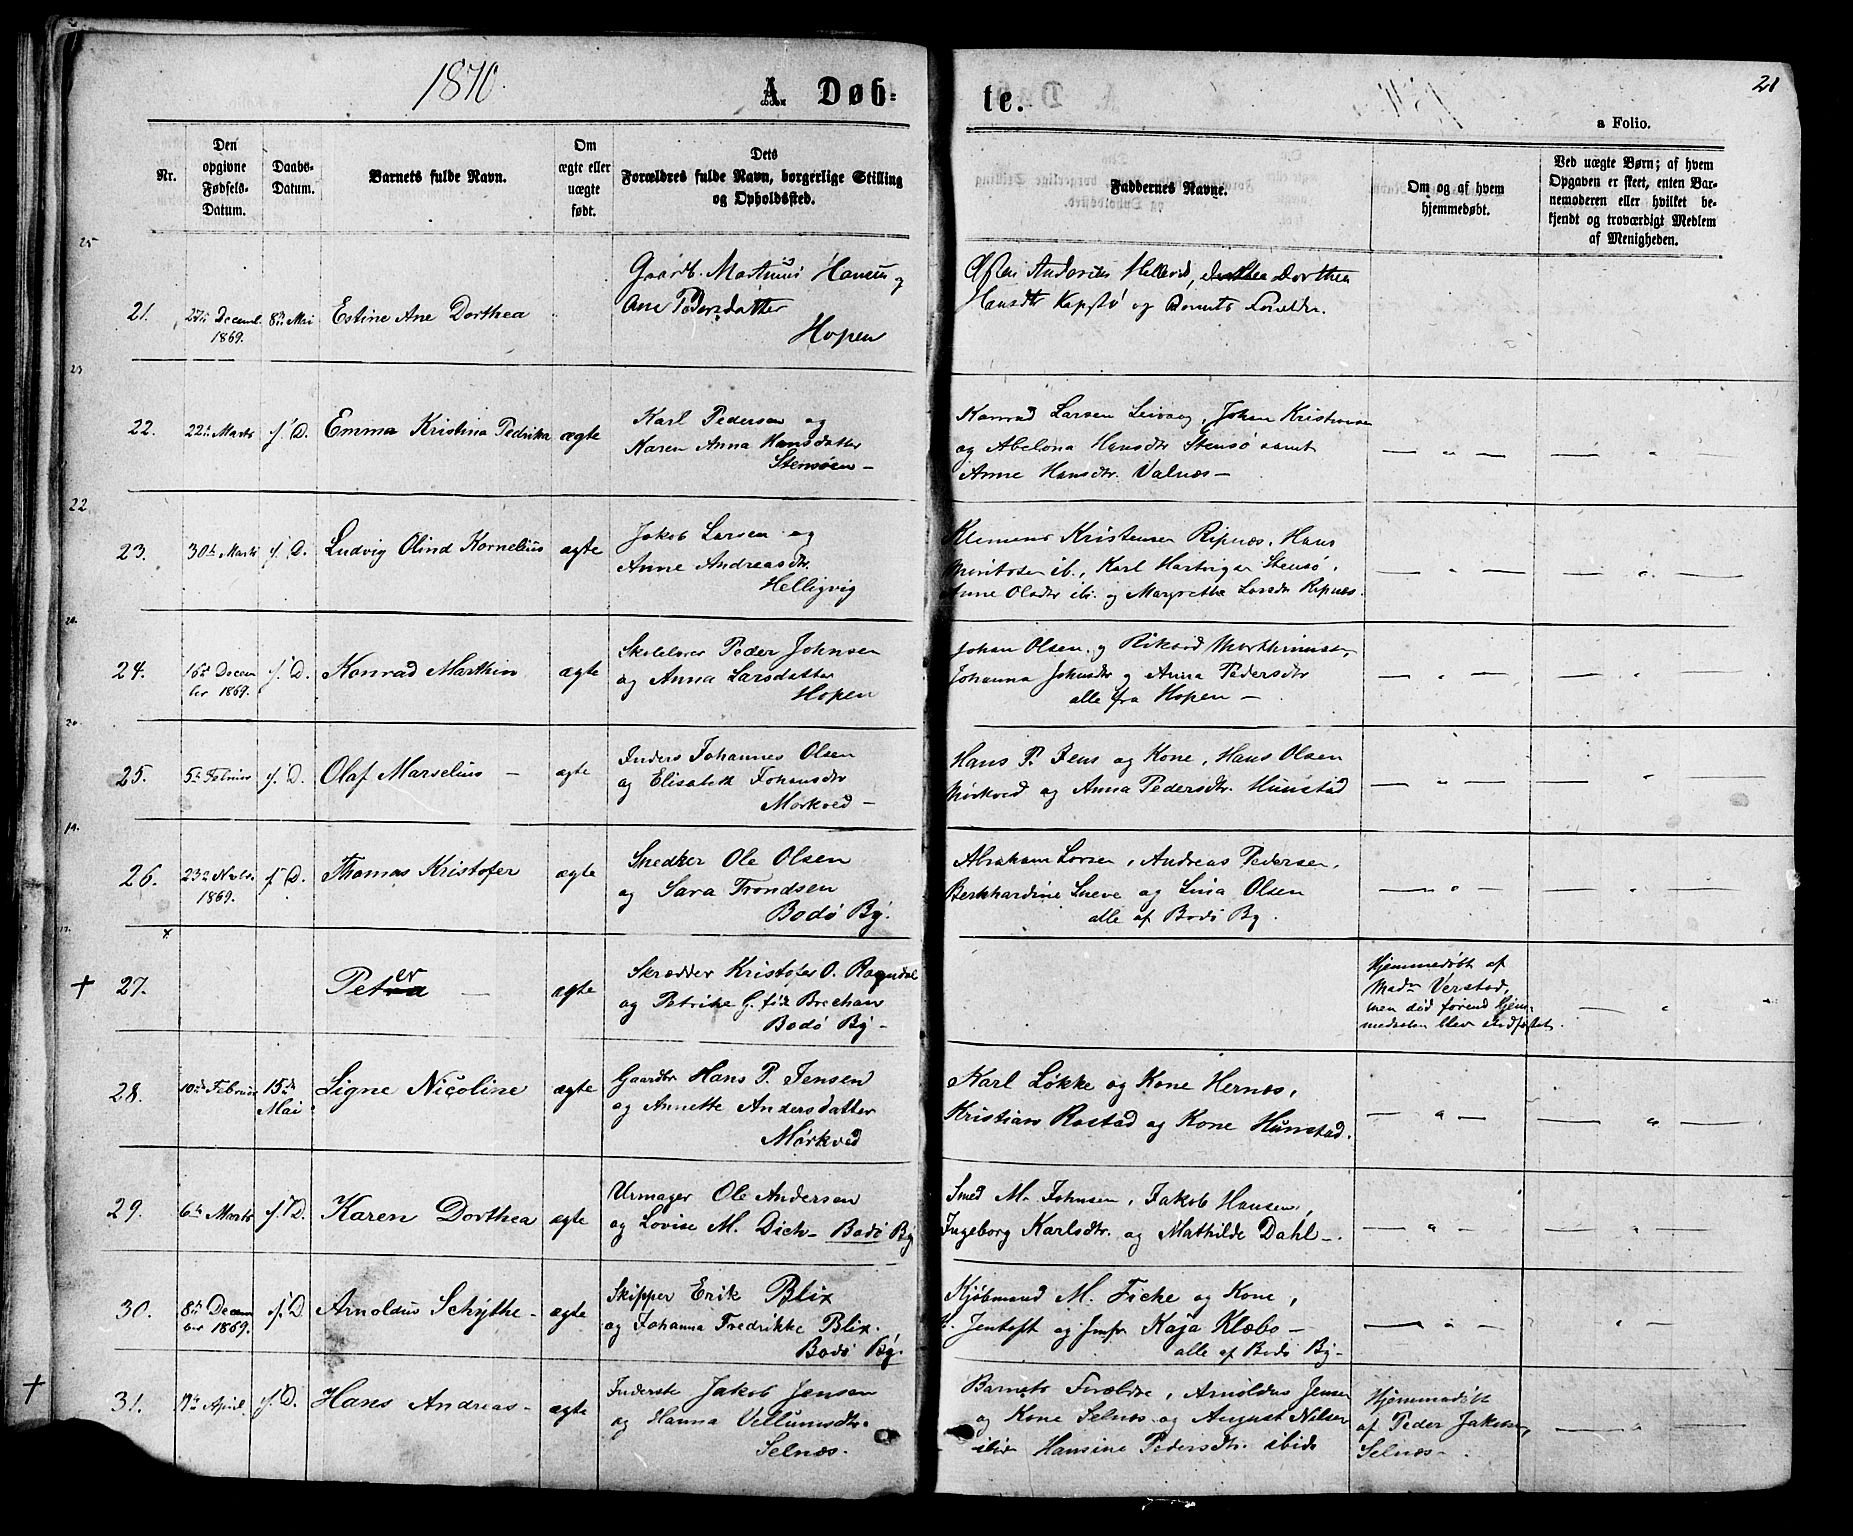 1870.
A. Døb-
te.
21
a Folio.
Nr.
Den opgivne Fødsels-Datum.
Daabs-Datum.
Barnets fulde Navn.
Om ægte eller uægte født.
Dets Forældres fulde Navn, borgerlige Stilling og Opholdssted.
Faddernes Navne.
Om og af hvem hjemmedøbt.
Ved uægte Børn; af hvem Opgaven er skeet, enten Barnemoderen eller hvilket bekjendt og troværdigt Medlem af Menigheden.
25
21. 8de Mai Estine Ane Dorthea
1869.
Gaardb. Hansen og
Ane Pedersdatter
Hopen
Dorthea
Hansdt og Barnets Forældre.
23
22. 22de Marts s. D. Emma Kristina Pedrika ægte
Karl Pedersen og
Karen Anna Hansdatter
Konrad Larsen Johan
og Abelona Hansdtr. Stensø samt
Anne Hansdtr. Valnæs —
22
23. 30te Marts s. D. Ludvig Olind Kornelius ægte
Jakob Larsen og
Anne Andreasdtr.
Helligvig
Klemens Kristensen Ripnæs, Hans
ib., Karl Stensø,
Anne Olsdtr ib. og Margrethe Larsdtr Ripnæs.
20.
24. 16de Decem s. D. Konrad Marthin ægte
ber 1869.
Skolelærer Peder Johnsen
og Anna Larsdatter
Hopen
Johan Olsen og Rikard
Johanna Johnsdtr og Anna Pedersdtr
alle fra Hopen —
20.
25. s. D. Olaf Marselius — ægte
Inders Johannes Olsen
og Elisabeth Johansdtr
Mørkved —
Hans P. Jens og Kone, Hans Olsen
Mørkved og Anna Pedersdtr. Hunstad
19.
26. s. D. Thomas Kristofer ægte
1869.
Snedker Ole Olsen
og Sara Trondsen
Bodø By.
Abraham Larsen, Andreas Pedersen,
og Lina Olsen
alle af Bodø By.
† 27. Peter ægte
Skrædder Kristofer O.
og Petrike G. født
Bodø By —
Hjemmedøbt af
Madm
men død førend Hjem-
medaaben blev stadfæstet.
28. 10de Februar 15de Mai Signe Nicoline ægte
Gaardbr Hans P. Jensen
og Annette Andersdatter
Mørkved
Karl Løkke og Kone Hernæs,
Kristian Rostad og Kone Hunstad.
29. 6te Marts s. D. Karen Dorthea ægte
Urmager Ole Andersen
og Lovise M. Dich — Bodø By
Smed M. Johnsen, Jakob Hansen,
Ingeborg Karlsdtr. og Mathilde Dahl —.
30. 8de Decem s. D. Arnoldus Schythe — ægte
ber 1869.
Skipper Erik Blix
og Johanna Fredrikke Blix.
Bodø By.
Kjøbmand M. Ficke og Kone,
Jentoft og Jmfr Kaja Klæbo —
alle af Bodø By —
† 31. April s. D. Hans Andreas — ægte
Inderste Jakob Jensen
og Hanna
Selnæs.
Barnets Forældre, Arnoldus Jensen
og Kone Selnæs og August Nilsen
ibid Hansine Pedersdtr. ibid
Hjemmedøbt
af Peder Jakobsen,
Selnæs —.